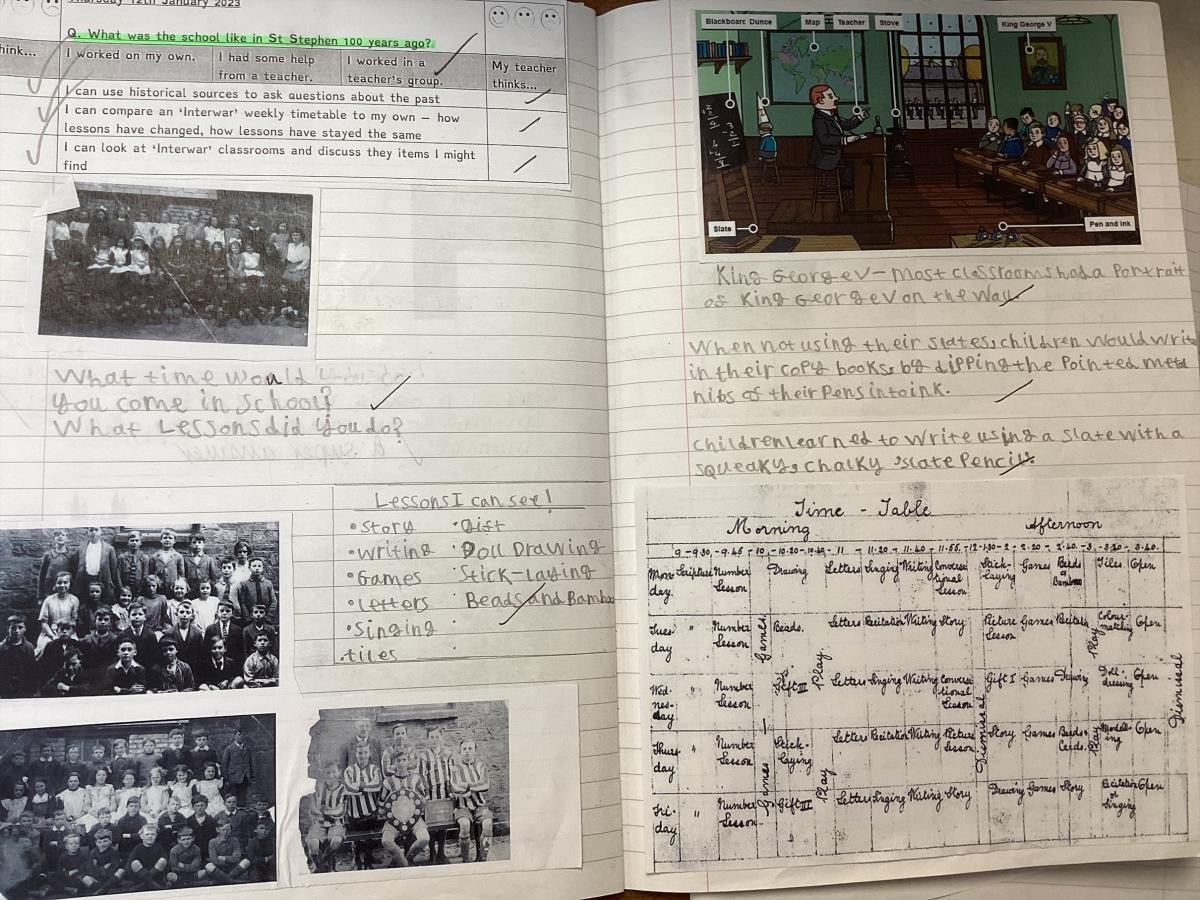 Thursday 12th January 2023
Q. What was the school like in St Stephen 100 years ago?
think...
I worked on my own.
I had some help from a teacher.
I worked in a teacher's group.
My teacher thinks...
I can use historical sources to ask questions about the past
I can compare an 'Interwar' weekly timetable to my own – how
lessons have changed, how lessons have stayed the same
I can look at 'Interwar' classrooms and discuss they items I might
find
What time would
you come in school?
What Lessons did you do?
Lessons I can see!
• Story • Gift
• writing • Doll Drawing
• Games Stick-laying
• letters Beads and Bamboo
• Singing
• tiles
Blackboard Dunce Map Teacher Stove King George V
Slate Pen and ink
King George V – most classrooms had a Portrait
of King George V on the Wall
When not using their slates, children would write
in their copy books, by dipping the pointed metal
nibs of their Pens into ink.
children learned to write using a slate with a
squeaky, chalky slate pencil.
Time - Table
Morning Afternoon
9 - 9.30 - 9.45 - 10 - 10.20 - 10.40 - 11 - 11.20 - 11.40 - 11.55 - 12 - 1.30 - 2 - 2.20 - 2.40 - 3 - 3.20 - 3.40
Monday Scripture Number Lesson Drawing Letters Singing Writing Conversational Lesson Stick-laying Games Beads & Bamboo Tiles Open
Tuesday " Number Lesson Games Beads. Letters Recitation Writing Story Picture Lesson Games Recitation Play Colour-matching Open
Wednesday " Number Lesson Gift III Play Letters Singing Writing Conversational Lesson Dismissal Gift I Games Drawing Doll-dressing Open Dismissal
Thursday " Number Lesson Games Stick-laying Letters Recitation Writing Picture Lesson Story Games Beads & Cards. Play Modelling Open
Friday " Number Lesson Gift III Play Letters Singing Writing Story Drawing Games Story Recitation or Singing Open